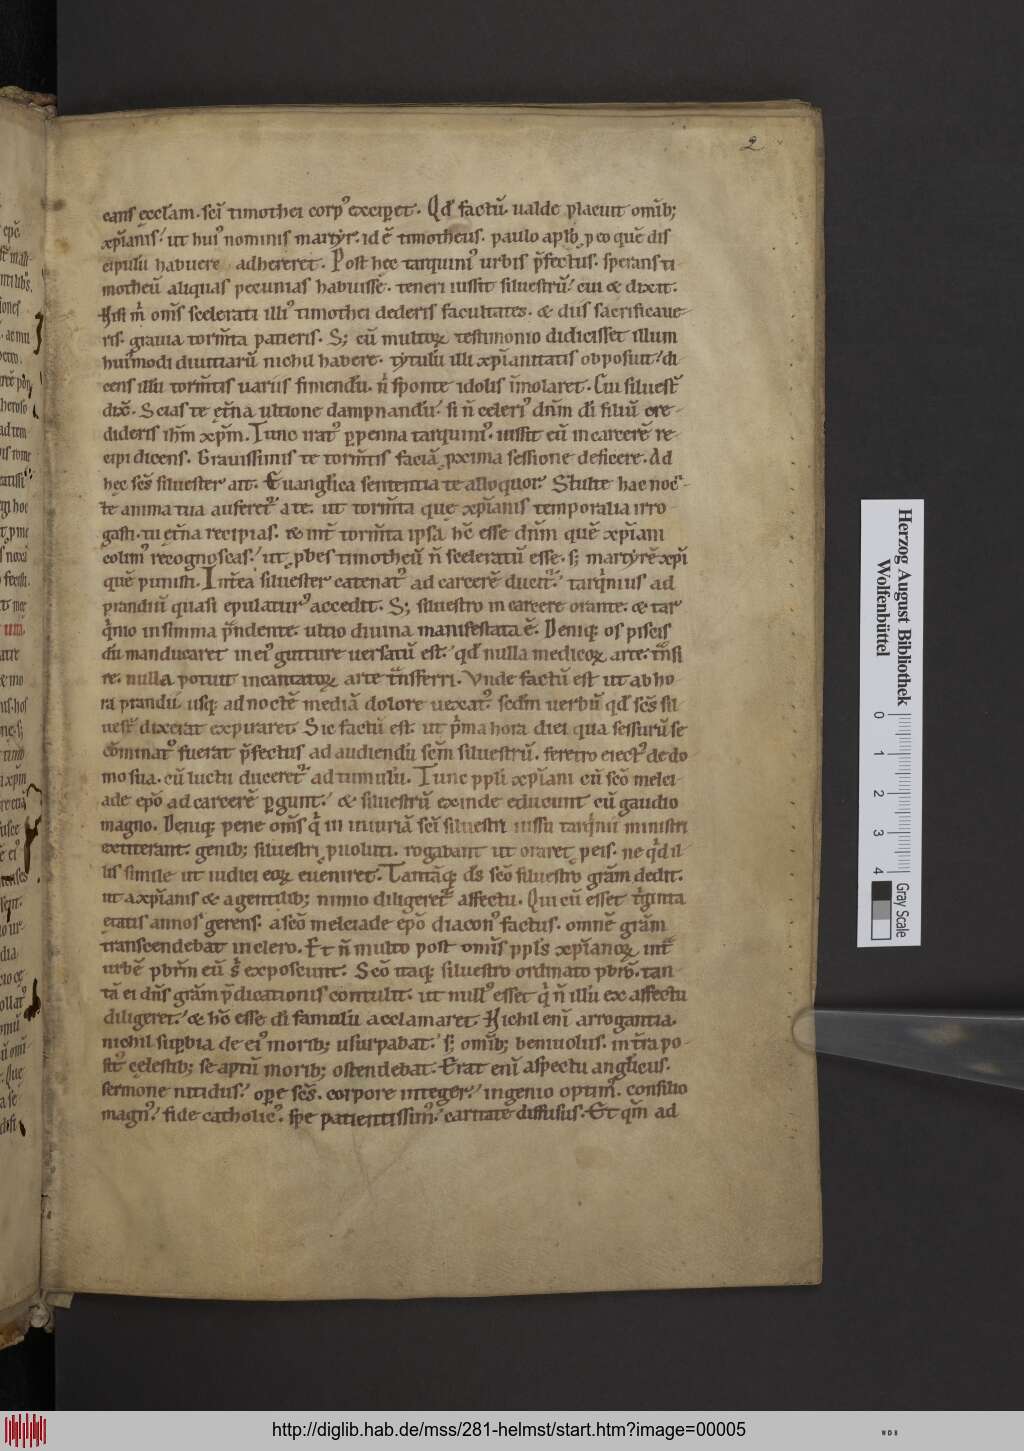 2
cans ęccƚam. sc̄i timothei corpꝰ exciperet. Qđ factū. ualde placuit omībꝫ
xp̄ianis. ut huiꝰ nominis martyr̄. id ē timotheus. paulo aplō ꝓ eo quē dis
cipulū habuere adhereret. Post hec tarquiniꝰ urbis p̄fectus. sperans ti
motheū aliquas pecunias habuisse. teneri iussit siluestrū. cui & dixit.
Nisi m̄ om̄s scelerati illiꝰ timothei dederis facultates. & diis sacrificaue
ris. grauia torm̄ta patieris. Sꝫ cū multoꝝ testimonio didicisset illum
huiꝰmodi diuitiarū nichil habere. tytulū illi xp̄ianitatis obposuit. di
cens illū torm̄tis uariis finiendū. n̄ sponte idolis īmolaret. Cui siluest̄
dix̄. Scias te ęt̄na ultione dampnandū. si n̄ celeriꝰ dn̄m di filiū cre
dideris ih̄m xp̄m. Tunc iratꝰ ꝑpenna tarquiniꝰ. iussit eū in carcerē re
cipi dicens. Grauissimis te torm̄tis faciā ꝓxima sessione deficere. Ad
hęc sc̄s siluester ait. Euanglica sententia te alloquor. Stulte hac noc
te anima tua auferetᷣ a te. ut torm̄ta que xp̄ianis temporalia irro
gasti. tu ęt̄na recipias. & int̄ torm̄ta ipsa hc̄ esse dn̄m quē xp̄iani
colimꝰ recognoscas. ut ꝓbes timotheū n̄ sceleratū esse. sꝫ martyrē xp̄i
quē punisti. Int̄ea siluester catenatꝰ ad carcerē ducitᷣ. tarqͥnius ad
prandiū quasi epulaturꝰ accedit. Sꝫ siluestro in carcere orante. & tar
qͥnio in simma p̄ndente. ultio diuina manifestata ē. Deniqꝫ os piscis
dū manducaret in eiꝰ gutture uersatū est. qđ nulla medicoꝝ arte. t̄nsi
re. nulla potuit incantatoꝝ arte t̄nsferri. Vnde factū est ut ab ho
ra prandii usqꝫ ad noctē mediā dolore uexatꝰ. scdm̄ uerbū qđ sc̄s sil
uest̄ dixerat expiraret. Sic factū est. ut pͥma hora diei qua sessurū se
cōminatꝰ fuerat p̄fectus ad audiendū sc̄m siluestrū. feretro eiectꝰ de do
mo sua. cū luctu duceretᷣ ad tumulū. Tunc ppli xp̄iani cū sc̄o melci
ade ep̄o ad carcerē ꝑgunt. & siluestrū exinde educunt cū gaudio
magno. Deniqꝫ pene om̄s qͥ in iniuriā sc̄i siluestri iussu tarqͥnii ministri
extiterant. genibꝫ siluestri ꝓuoluti. rogabant ut oraret ꝓ eis. ne qͥd il
lis simile ut iudici eoꝝ eueniret. Tantāqꝫ ds̄ sc̄o siluestro grām dedit.
ut a xp̄ianis & a gentilibꝫ nimio diligeretᷣ affectu. Qui cū esset tͥginta
ętatis annos gerens. a sc̄o melciade ep̄o diaconꝰ factus. omnē grām
transcendebat in clero. Et n̄ multo post om̄is ppl̄s xp̄ianoꝝ int̄
urbē pbr̄m eū sͥ exposcunt. Sc̄o itaqꝫ siluestro ordinato pbr̄o. tan
tā ei dn̄s grām p̄dicationis contulit. ut nullꝰ esset qͥ n̄ illū ex affectu
diligeret. & hc̄ esse di famulū acclamaret. Nichil enī arrogantia.
nichil suꝑbia de eiꝰ moribꝫ usurpabat. sꝫ omībꝫ beniuolus. int̄ra po
sitꝰ cęlestibꝫ se aptū moribꝫ ostendebat. Erat enī aspectu anglicus.
sermone nitidus. oꝑe sc̄s. corpore integer. ingenio optimꝰ. consilio
magnꝰ. fide catholicꝰ. spe patientissimꝰ. caritate diffusus. Et qm̄ ad
Herzog August Bibliothek
Wolfenbüttel
0 1 2 3 4
Gray Scale
http://diglib.hab.de/mss/281-helmst/start.htm?image=00005